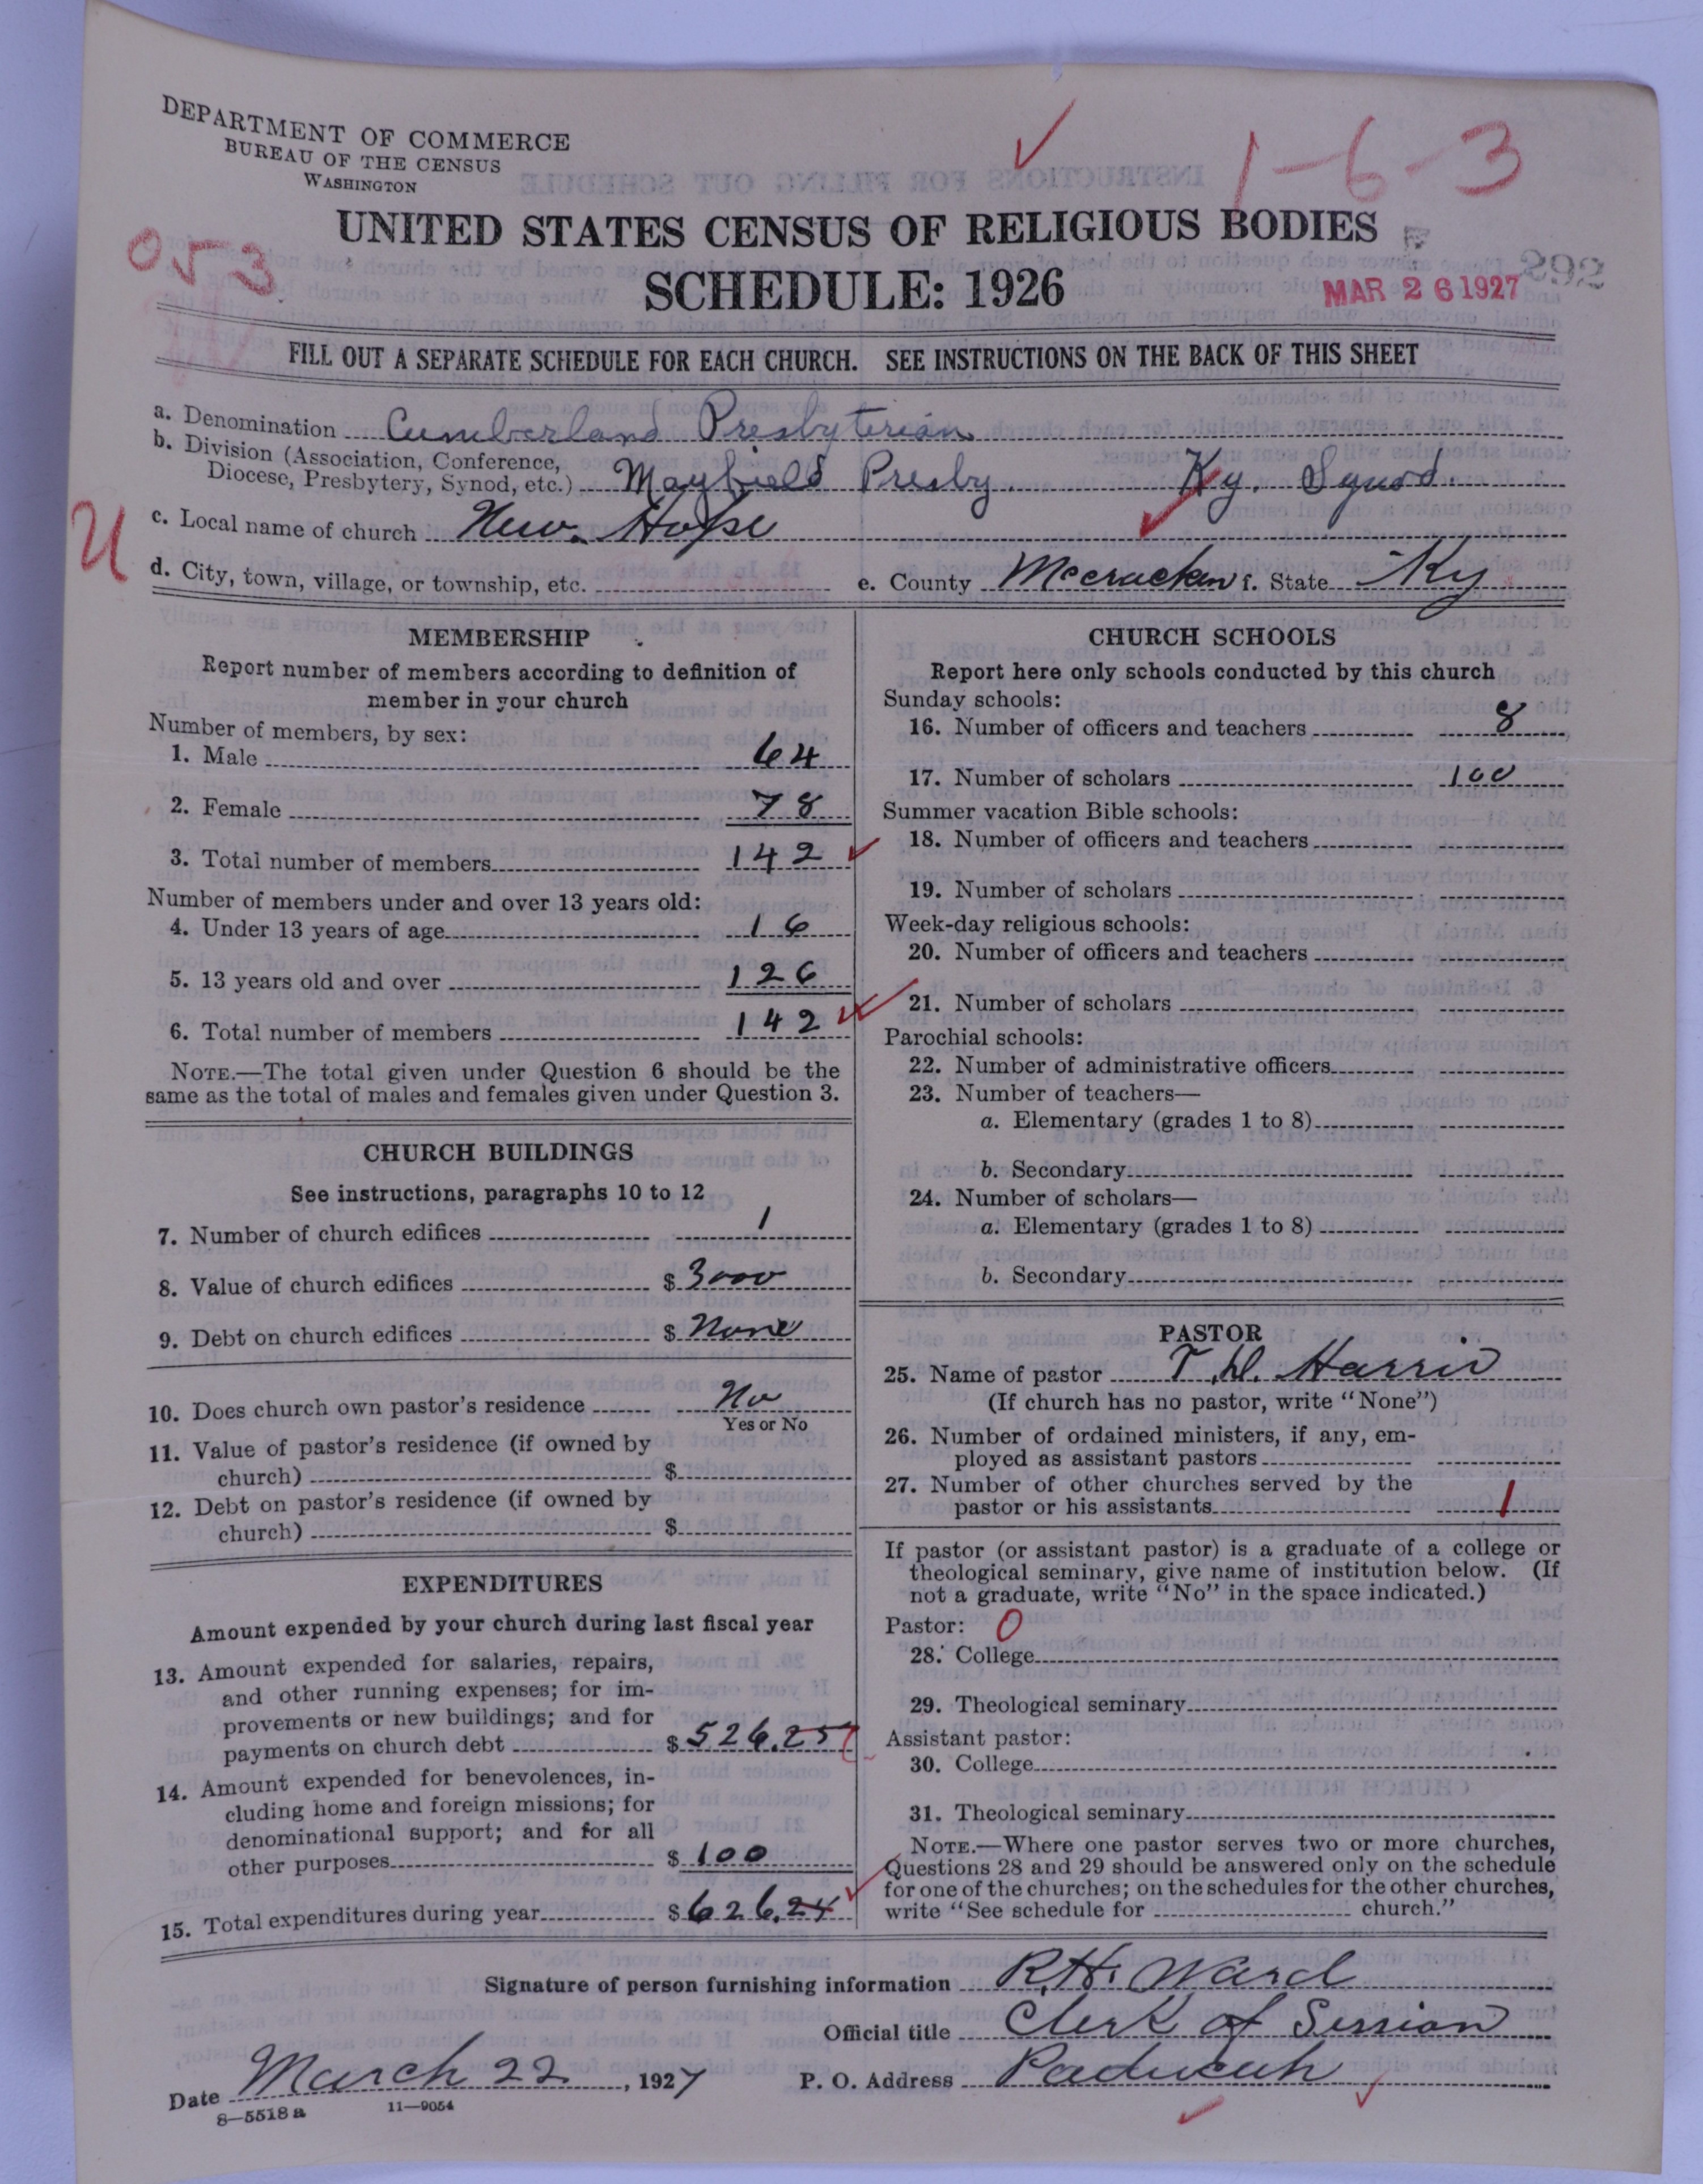 DEPARTMENT OF COMMERCE
BUREAU OF THE CENSUS
WASHINGTON
1-6-3
UNITED STATES CENSUS OF RELIGIOUS BODIES
053
SCHEDULE: 1926
292
MAR 26 1927
FILL OUT A SEPARATE SCHEDULE FOR EACH CHURCH. SEE INSTRUCTIONS ON THE BACK OF THIS SHEET
a. Denomination Cumberland Presbyterian
b. Division (Association, Conference,
Diocese, Presbytery, Synod, etc.) Mayfield Presby. Ky. Synod.
c. Local name of church New. Hope
U
d. City, town, village, or township, etc. e. County Mccracken f. State Ky
MEMBERSHIP
Report number of members according to definition of
member in your church
Number of members, by sex:
1. Male 64
2. Female 78
3. Total number of members 142
Number of members under and over 13 years old:
4. Under 13 years of age 16
5. 13 years old and over 126
6. Total number of members 142
NOTE.—The total given under Question 6 should be the
same as the total of males and females given under Question 3.
CHURCH BUILDINGS
See instructions, paragraphs 10 to 12
7. Number of church edifices 1
8. Value of church edifices $ 3000
9. Debt on church edifices $ None
10. Does church own pastor's residence No
Yes or No
11. Value of pastor's residence (if owned by
church) $
12. Debt on pastor's residence (if owned by
church) $
EXPENDITURES
Amount expended by your church during last fiscal year
13. Amount expended for salaries, repairs,
and other running expenses; for im-
provements or new buildings; and for
payments on church debt $ 526.25
14. Amount expended for benevolences, in-
cluding home and foreign missions; for
denominational support; and for all
other purposes $ 100
15. Total expenditures during year $ 626.24
CHURCH SCHOOLS
Report here only schools conducted by this church
Sunday schools:
16. Number of officers and teachers 8
17. Number of scholars 100
Summer vacation Bible schools:
18. Number of officers and teachers
19. Number of scholars
Week-day religious schools:
20. Number of officers and teachers
21. Number of scholars
Parochial schools:
22. Number of administrative officers
23. Number of teachers—
a. Elementary (grades 1 to 8)
b. Secondary
24. Number of scholars—
a. Elementary (grades 1 to 8)
b. Secondary
PASTOR
25. Name of pastor T. W. Harris
(If church has no pastor, write "None")
26. Number of ordained ministers, if any, em-
ployed as assistant pastors
27. Number of other churches served by the
pastor or his assistants 1
If pastor (or assistant pastor) is a graduate of a college or
theological seminary, give name of institution below. (If
not a graduate, write "No" in the space indicated.)
Pastor: 0
28. College
29. Theological seminary
Assistant pastor:
30. College
31. Theological seminary
NOTE.—Where one pastor serves two or more churches,
Questions 28 and 29 should be answered only on the schedule
for one of the churches; on the schedules for the other churches,
write "See schedule for church."
Signature of person furnishing information R.H. Ward
Official title Clerk of Session
Date March 22, 1927 P. O. Address Paducah
8—5518 a 11—9054